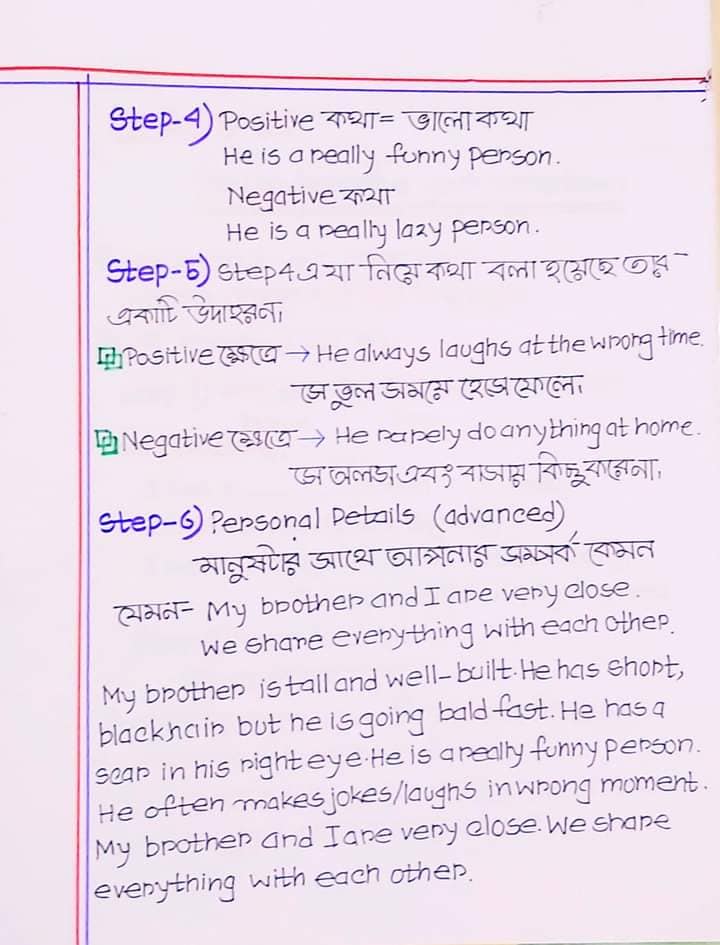 Step-4) Positive কথা = ভালো কথা
He is a really funny person.
Negative কথা
He is a really lazy person.
Step-5) Step 4 এ যা নিয়ে কথা বলা হয়েছে তার
একাটি উদাহরন।
Positive ক্ষেত্রে → He always laughs at the wrong time.
সে ভুল সময়ে হেসে ফেলে।
Negative ক্ষেত্রে → He rarely do anything at home.
সে অলস এবং বাসায় কিছু করেনা।
Step-6) Personal Details (advanced)
মানুষটার সাথে আপনার সমপর্ক কেমন
যেমন- My brother and I are very close.
We share everything with each other.
My brother is tall and well-built. He has short,
black hair but he is going bald fast. He has a
scar in his right eye. He is a really funny person.
He often makes jokes/laughs in wrong moment.
My brother and I are very close. We share
everything with each other.